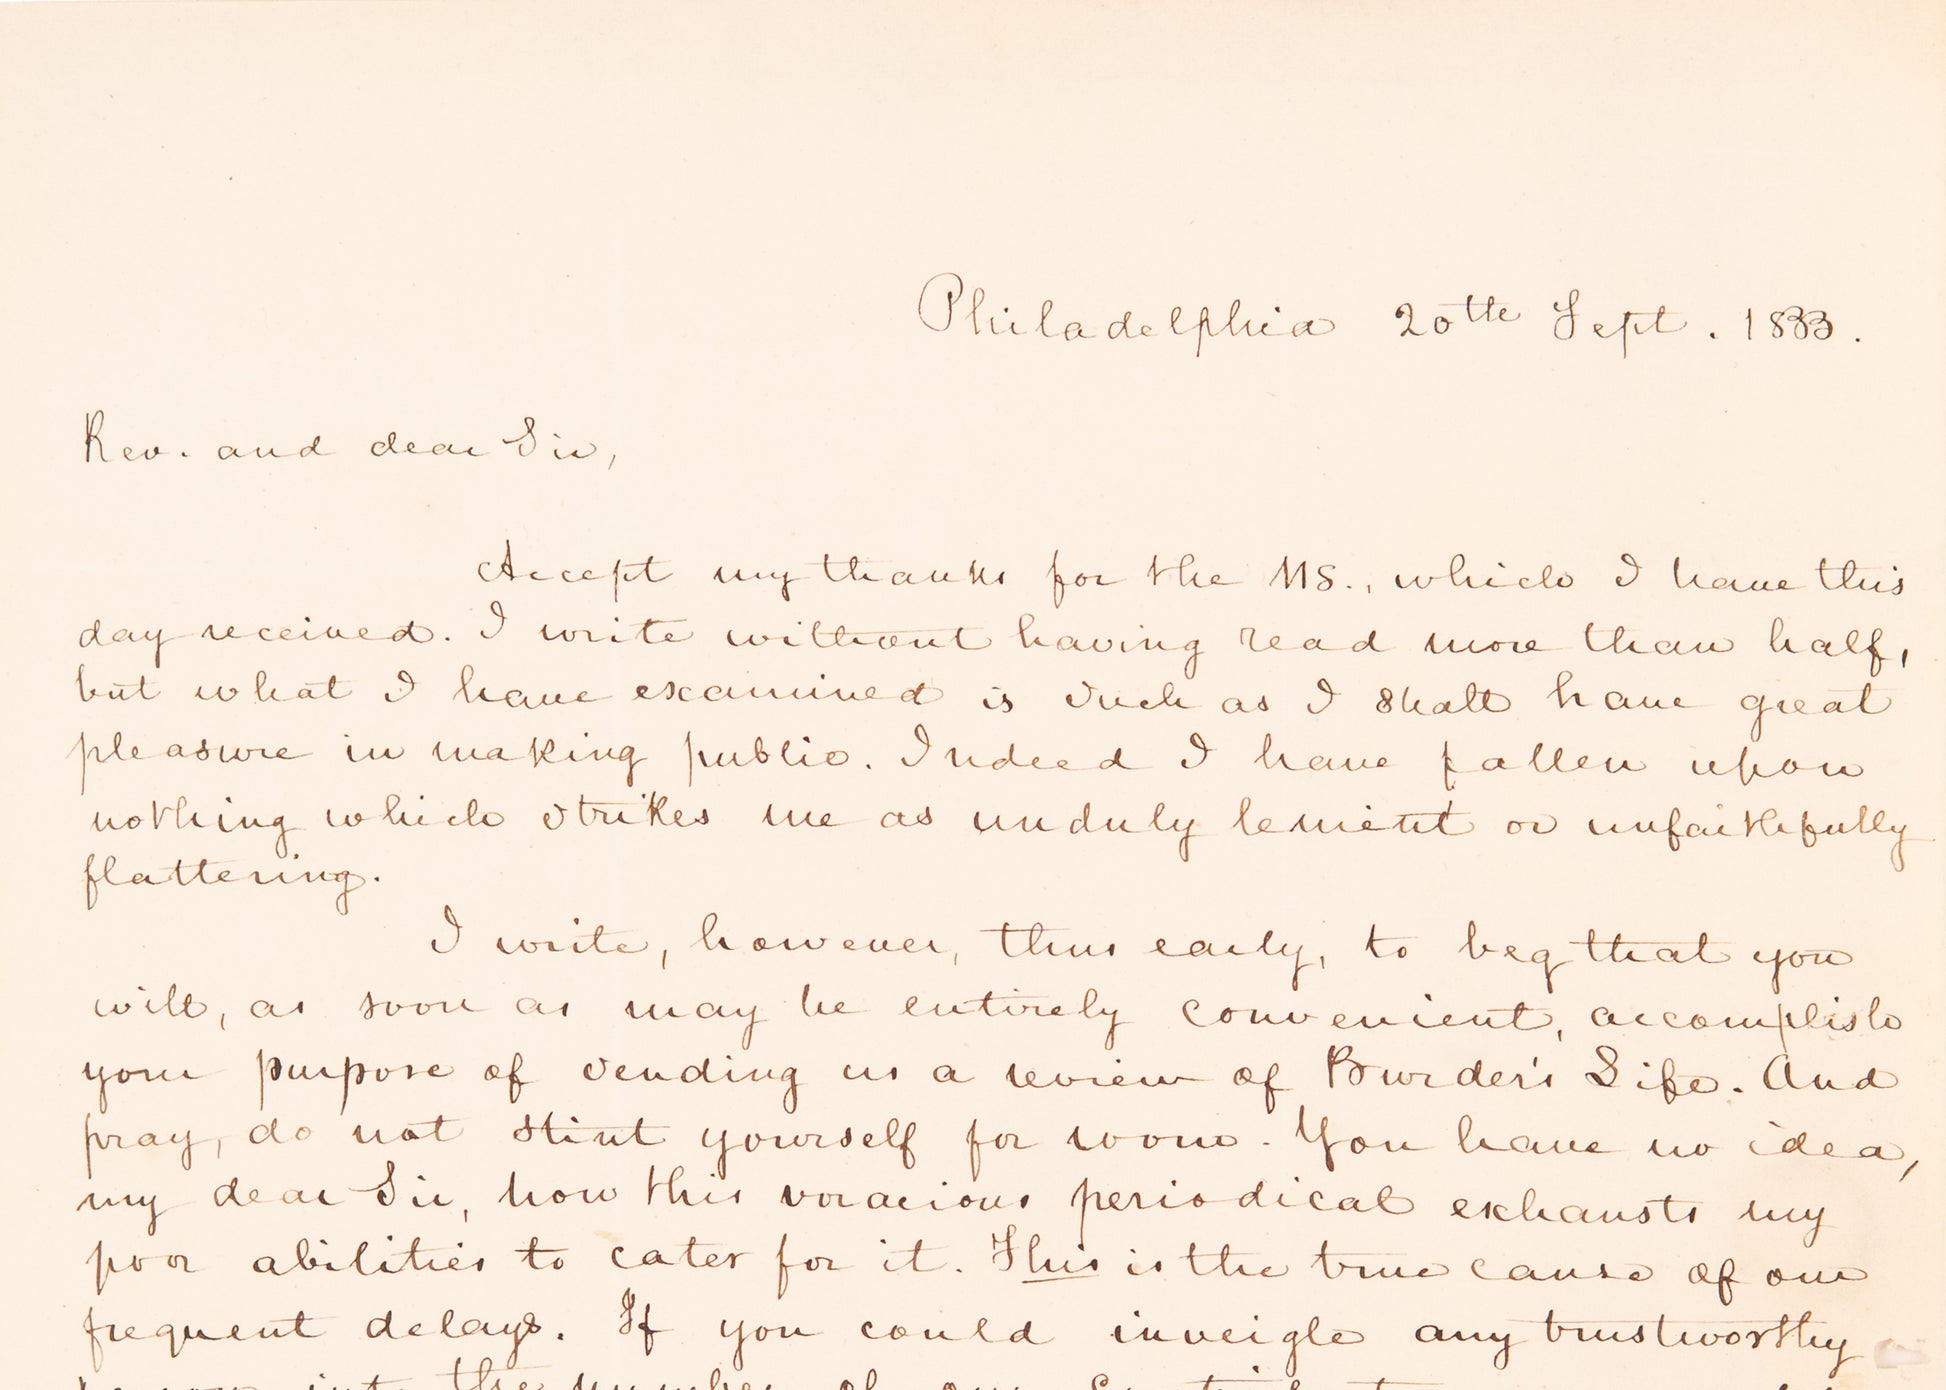 Philadelphia 20th Sept. 1833.
Rev. and dear Sir,
Accept my thanks for the MS., which I have this
day received. I write without having read more than half,
but what I have examined is such as I shall have great
pleasure in making public. Indeed I have fallen upon
nothing which strikes me as unduly lenient or unfaithfully
flattering.
I write, however, thus early, to beg that you
will, as soon as may be entirely convenient, accomplish
your purpose of sending us a review of Burder's Life. And
pray, do not stint yourself for room. You have no idea,
my dear Sir, how this voracious periodical exhausts my
poor abilities to cater for it. This is the true cause of our
frequent delays. If you could inveigle any trustworthy
person into the number of our